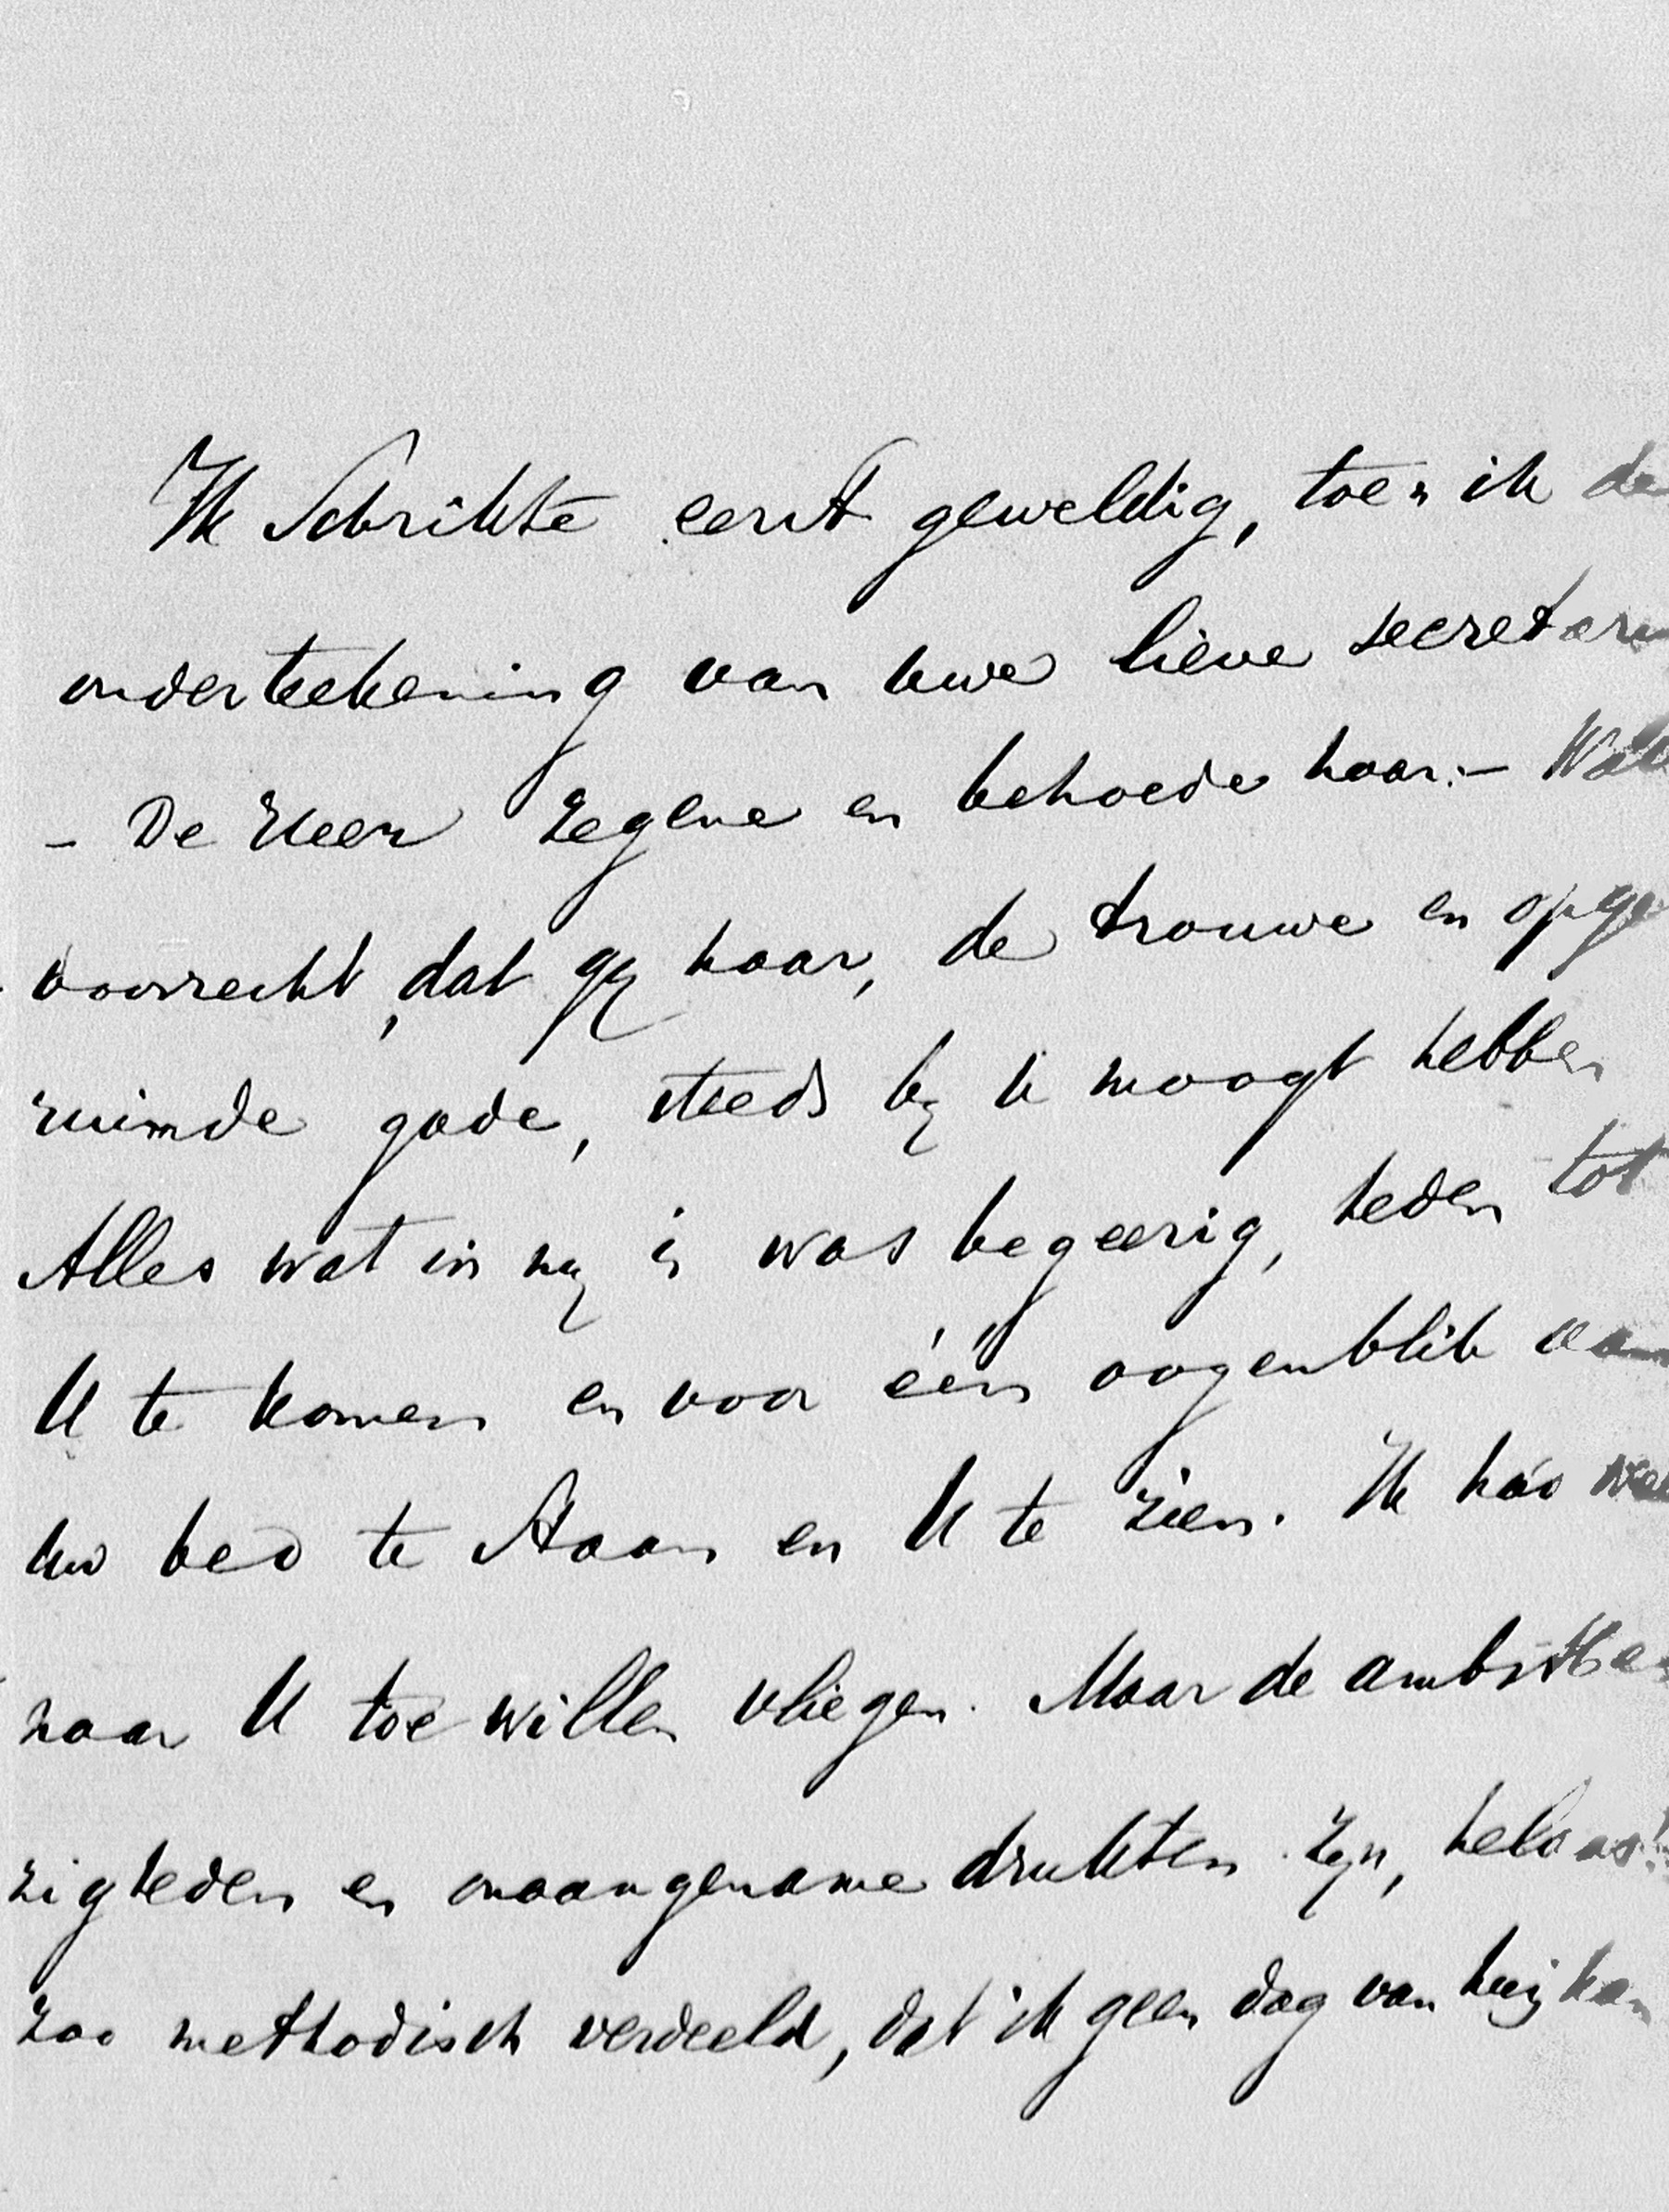 Ik schrikte eerst geweldig, toen ik de
onderteekening van uwe lieve secretaris
- De Heer zegene en behoede haar. - Welk
voorrecht, dat gij haar, de trouwe en opge
ruimde gade, steeds bij U moogt hebben
Alles wat in mij is was begeerig, heden tot
U te komen en voor één oogenblik aan
Uw bed te staan en U te zien. Ik had wel
naar U toe willen vliegen. Maar de ambtsbe
zigheden en onaangename drukten zijn, helaas!
zoo methodisch verdeeld, dat ik geen dag van huij kan